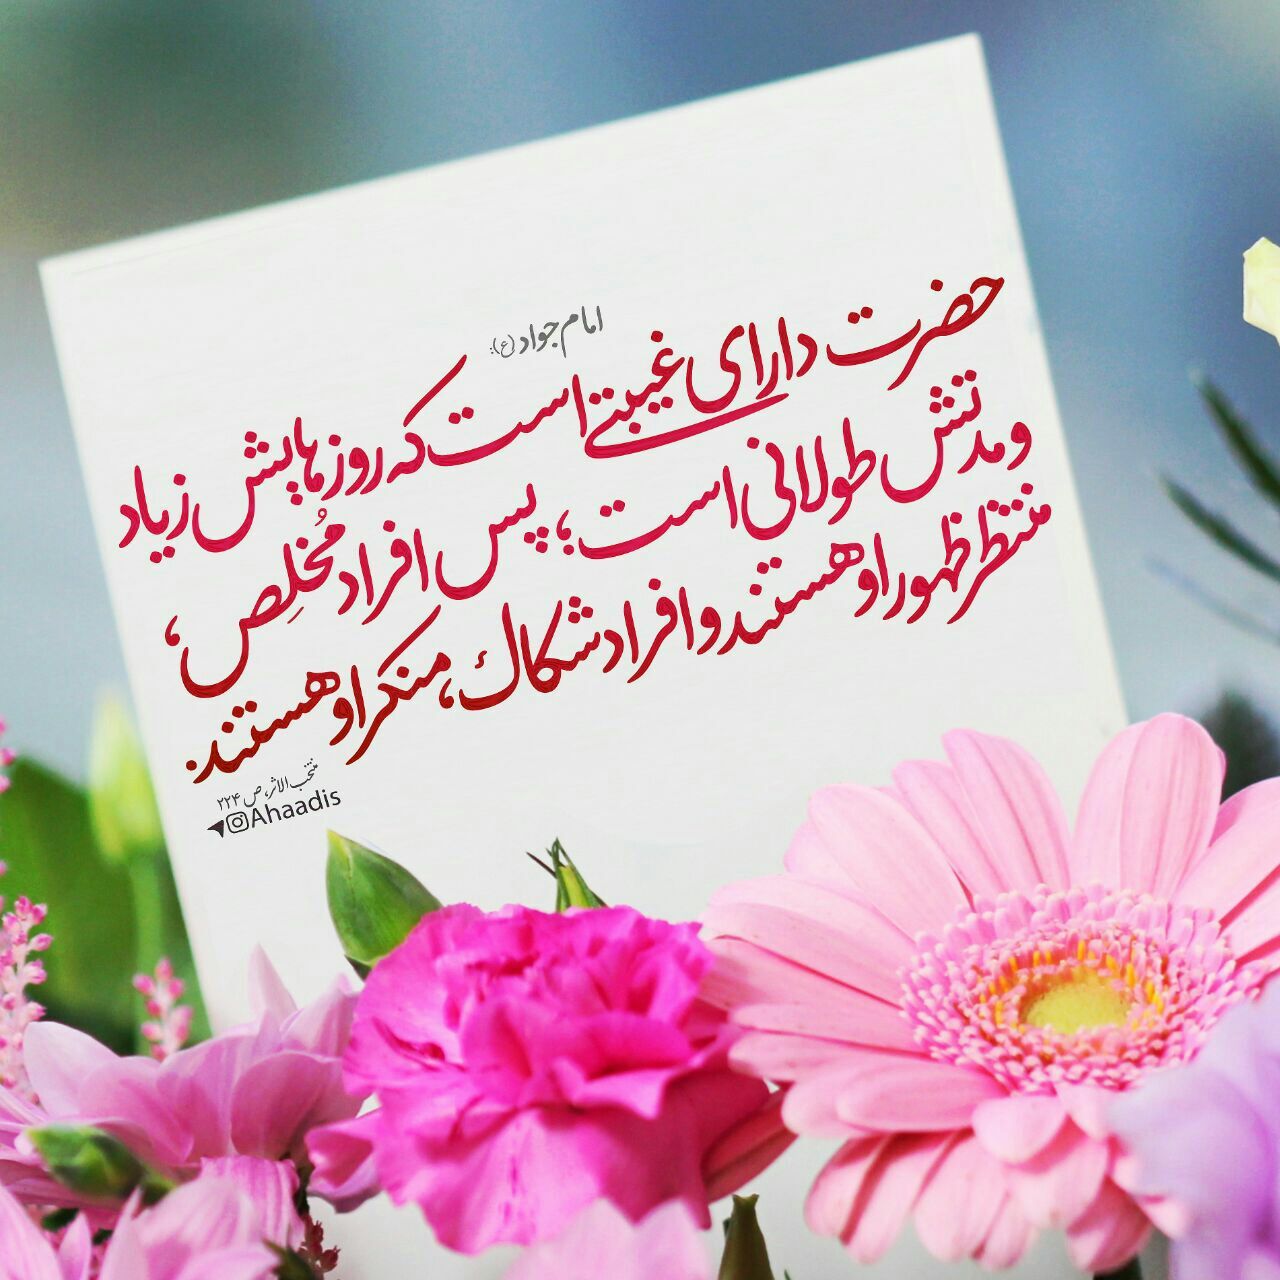 امام جواد (ع):
حضرت دارای غیبتی است که روزهایش زیاد
و مدتش طولانی است؛ پس افراد مُخلِص،
منتظر ظهور او هستند و افراد شکاک، منکر او هستند.
منتخب الاثر، ص ۲۲۴
Ahaadis